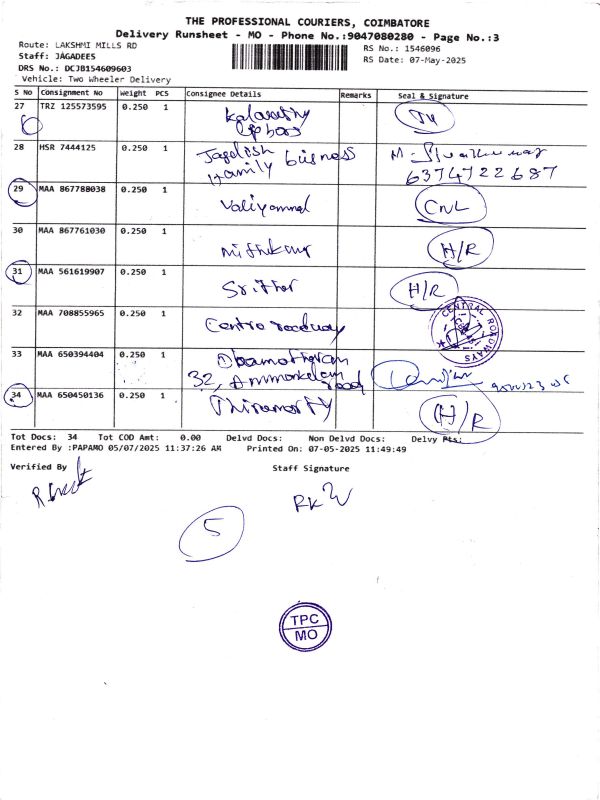 THE PROFESSIONAL COURIERS, COIMBATORE
Delivery Runsheet - MO - Phone No.:9047080280 - Page No.:3
Route: LAKSHMI MILLS RD
RS No.: 1546096
Staff: JAGADEES
RS Date: 07-May-2025
DRS No.: DCJB154609603
Vehicle: Two Wheeler Delivery
S No Consignment No Weight PCS Consignee Details Remarks Seal & Signature
27 TRZ 125573595 0.250 1
28 HSR 7444125 0.250 1 Jagdish
Family business
6374722687
29 MAA 867788038 0.250 1 Valiyammal CNL
30 MAA 867761030 0.250 1 H/R
31 MAA 561619907 0.250 1 Srither H/R
32 MAA 708855965 0.250 1 Centro roadway CENTRAL ROADWAYS
33 MAA 650394404 0.250 1
32, road
34 MAA 650450136 0.250 1 H/R
Tot Docs: 34 Tot COD Amt: 0.00 Delvd Docs: Non Delvd Docs: Delvy Pts:
Entered By :PAPAMO 05/07/2025 11:37:26 AM Printed On: 07-05-2025 11:49:49
Verified By Staff Signature
5
TPC
MO